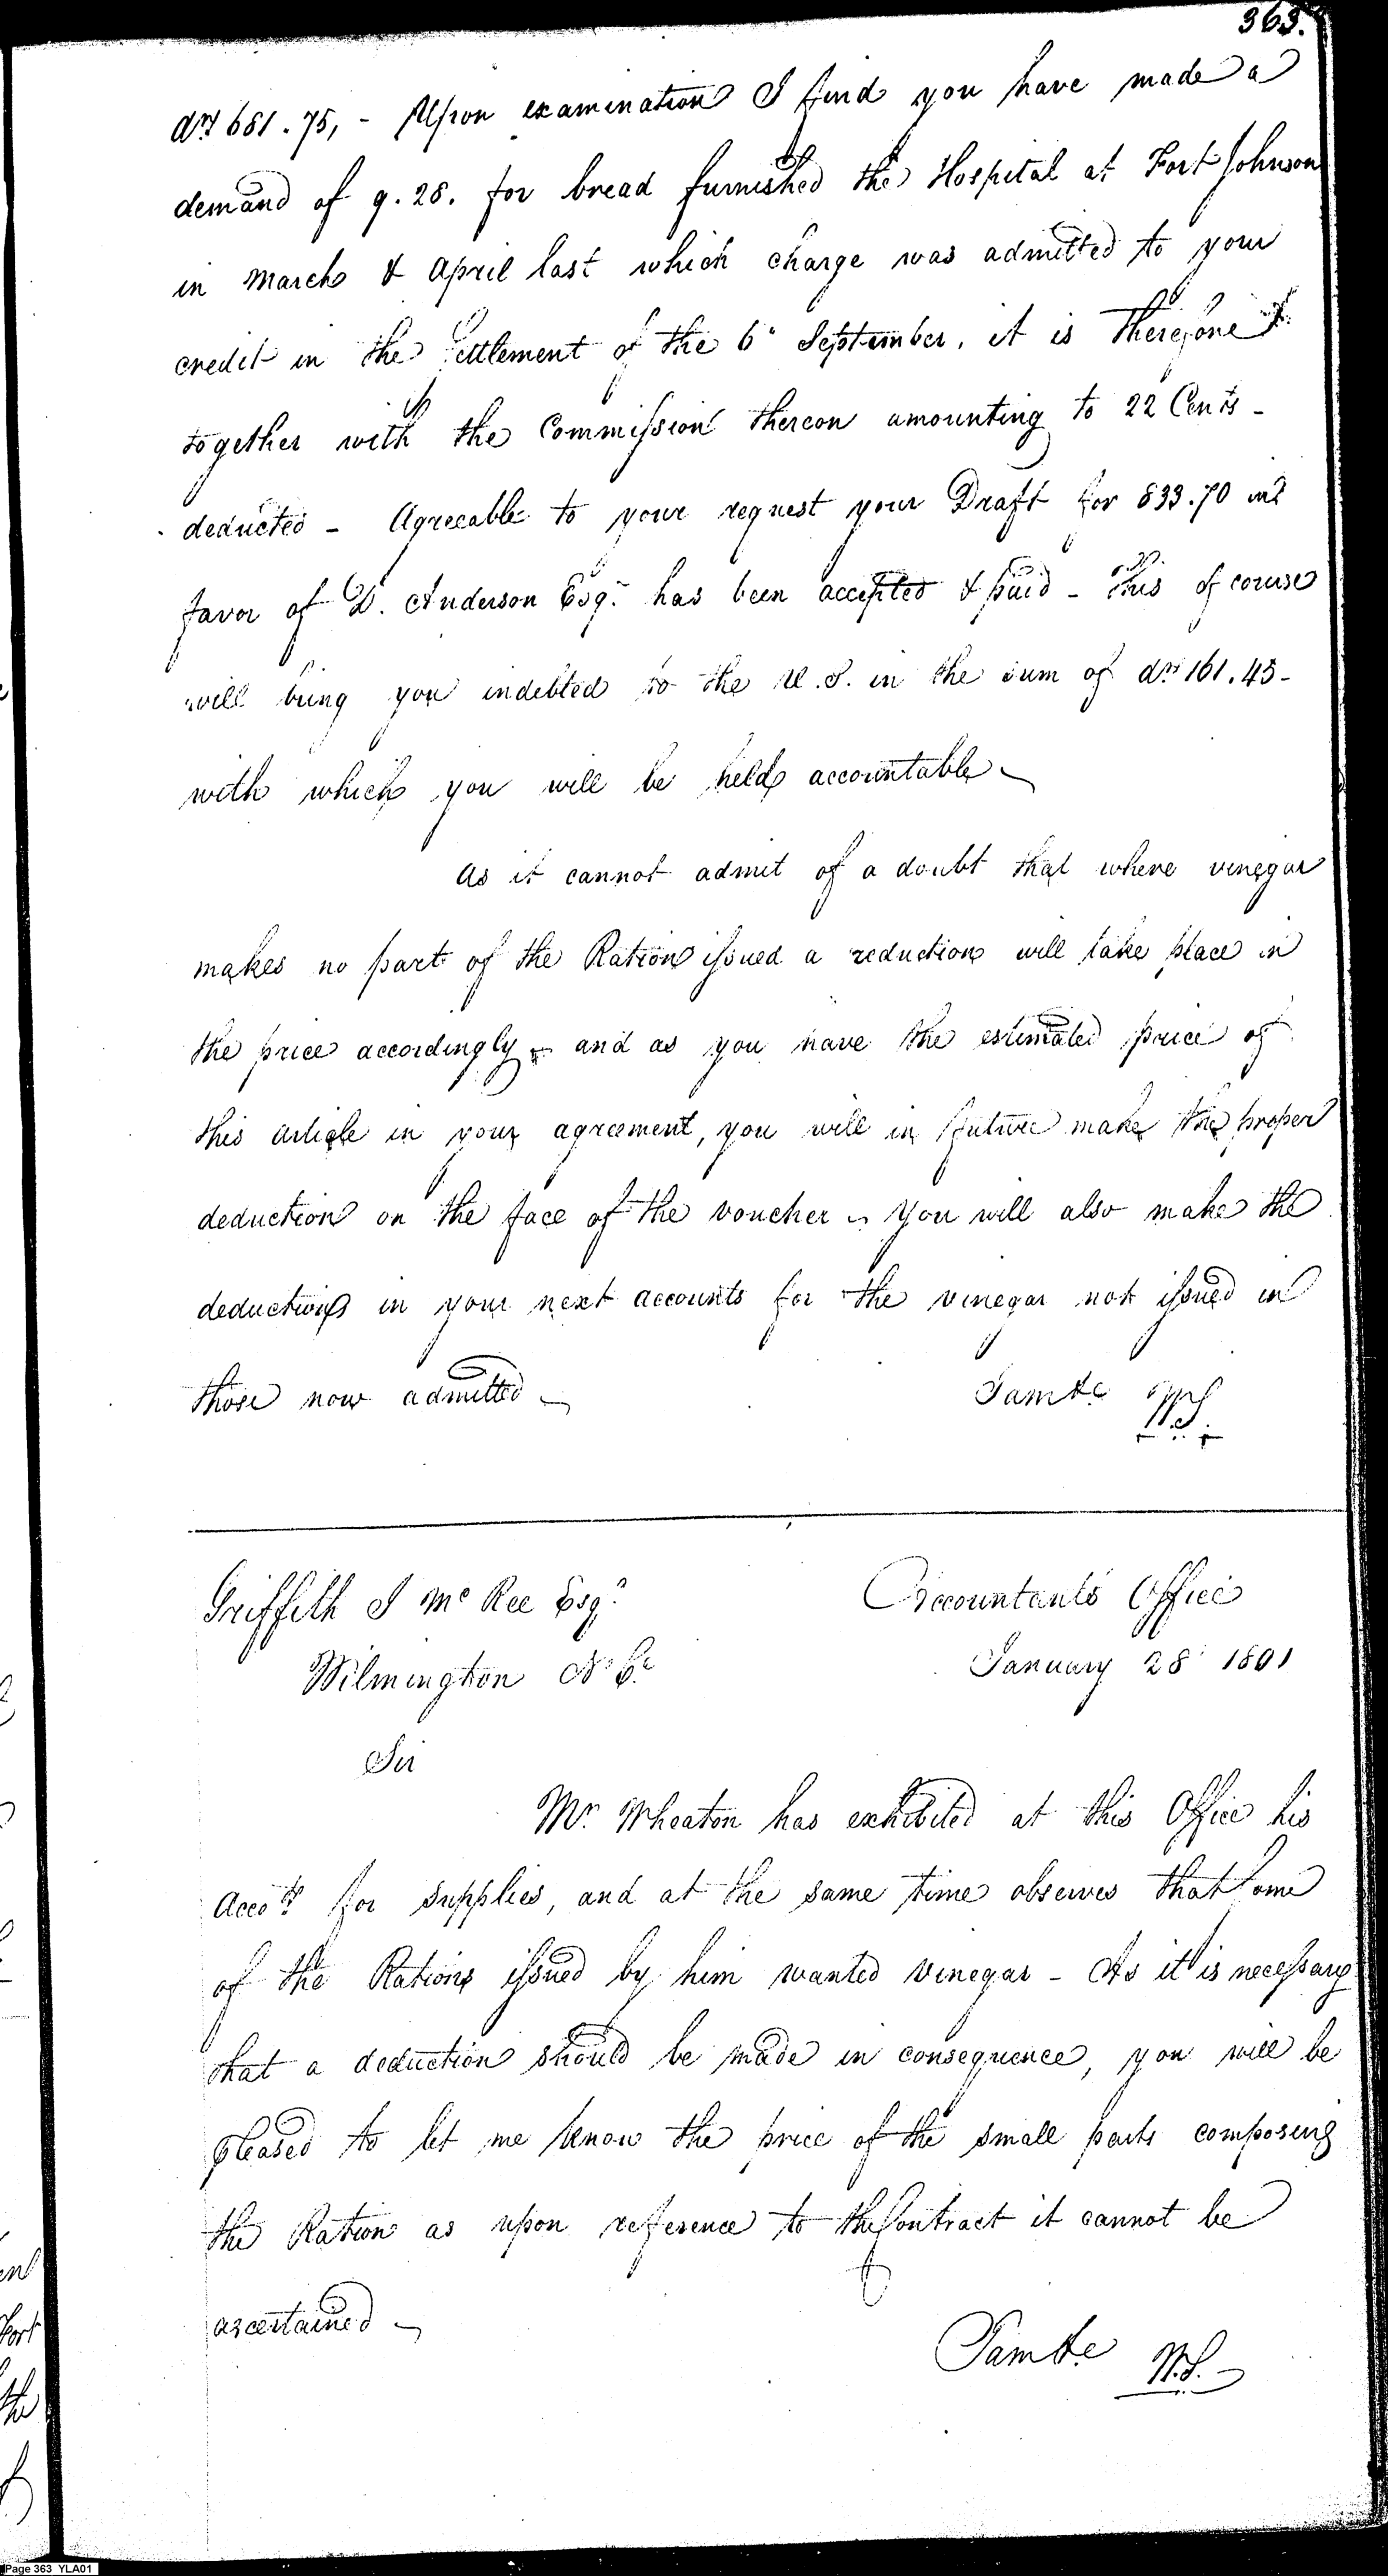 363.
drs 681.75, - Upon examination I find you have made a
demand of 9.28. for bread furnished the Hospital at Fort Johnson
in March & April last which charge was admitted to your
credit in the Settlement of the 6th September, it is therefore
together with the Commission thereon amounting to 22 Cents -
deducted - Agreeable to your request your Draft for 833.70 in
favor of D. Anderson Esqr. has been accepted & paid - This of course
will bring you indebted to the U.S. in the sum of drs 161.45 -
with which you will be held accountable -
As it cannot admit of a doubt that where vinegar
makes no part of the Ration issued a reduction will take place in
the price accordingly - and as you have the estimated price of
this article in your agreement, you will in future make the proper
deduction on the face of the voucher - You will also make the
deductions in your next accounts for the vinegar not issued in
those now admitted -
I am &c
W.S.
Griffith J McRee Esqr.
Accountants Office
Wilmington No Ca.
January 28th 1801
Sir
Mr. Wheaton has exhibited at this Office his
Accots. for supplies, and at the same time observes that some
of the Rations issued by him wanted vinegar - As it is necessary
that a deduction should be made in consequence, you will be
pleased to let me know the price of the small parts composing
the Ration as upon reference to the Contract it cannot be
ascertained -
I am &c
W.S.
Page 363 YLA01